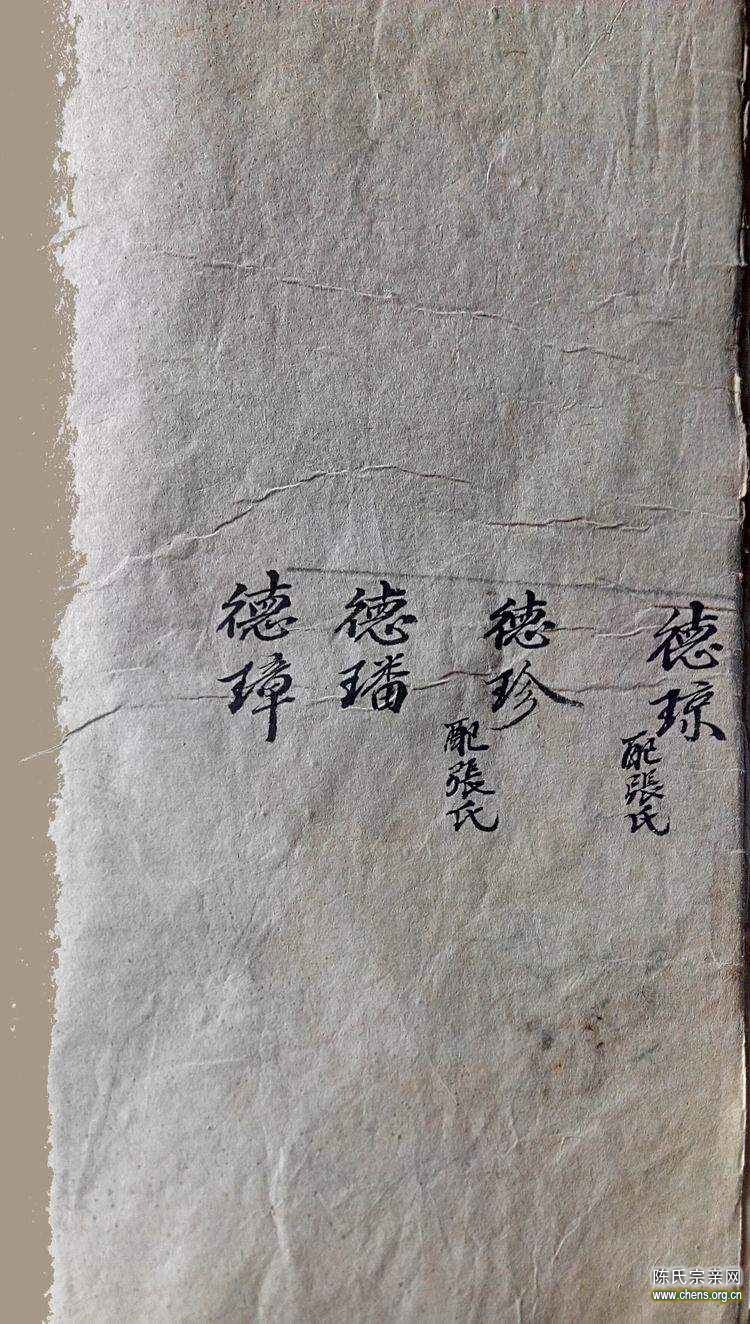 德琼
配張氏
德珍
配張氏
德璠
德璋
陈氏宗亲网
www.chens.org.cn